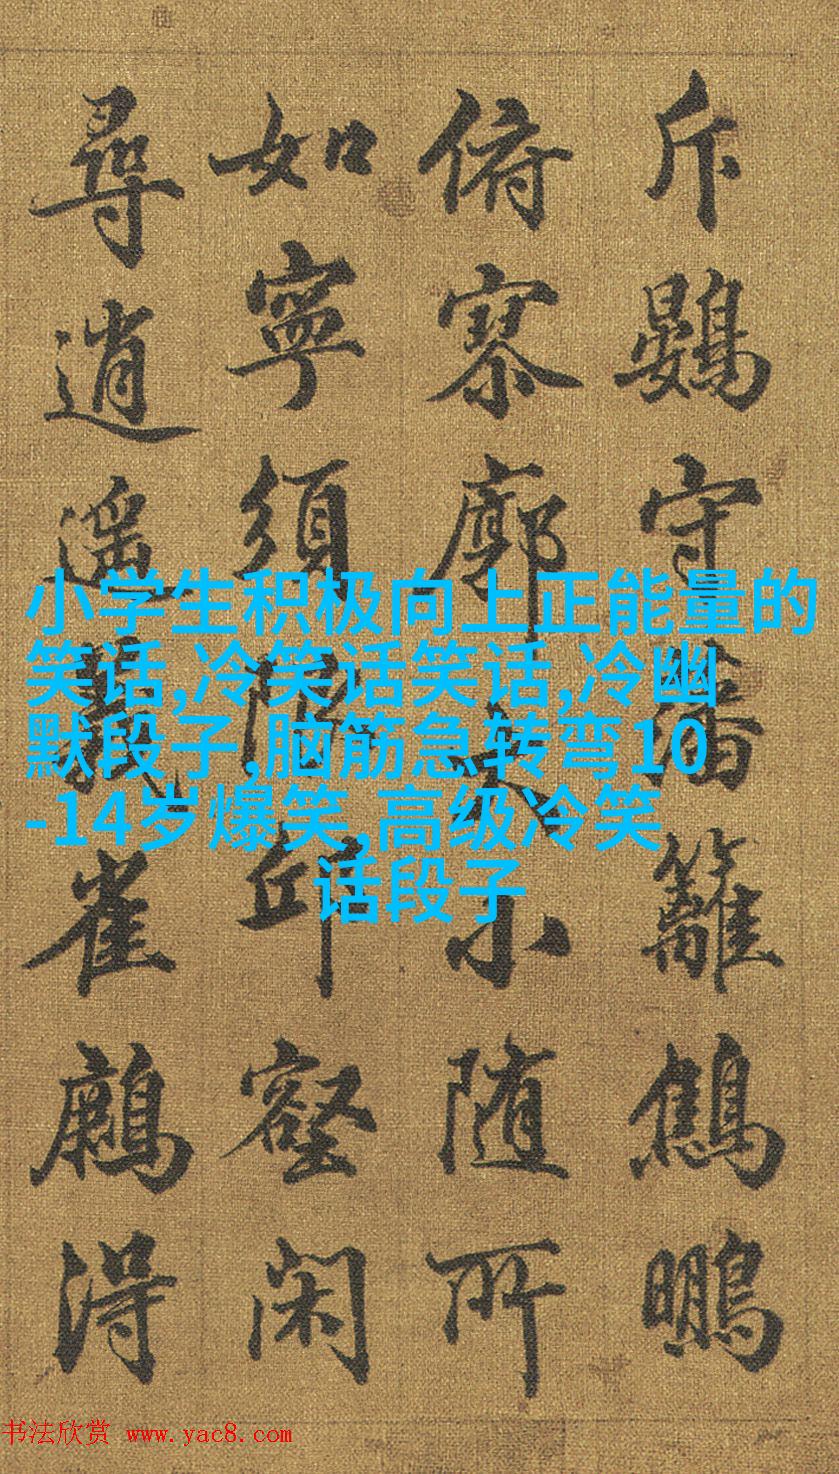 斥鷃守藩籬鷦鵬
俯寥廓大小随所
如寧須限邱壑閑
尋逍遥雀得
小学生积极向上正能量的
笑话,冷笑话笑话,冷幽
默段子,脑筋急转弯10
-14岁爆笑,高级冷笑
话段子
书法欣赏 www.yac8.com